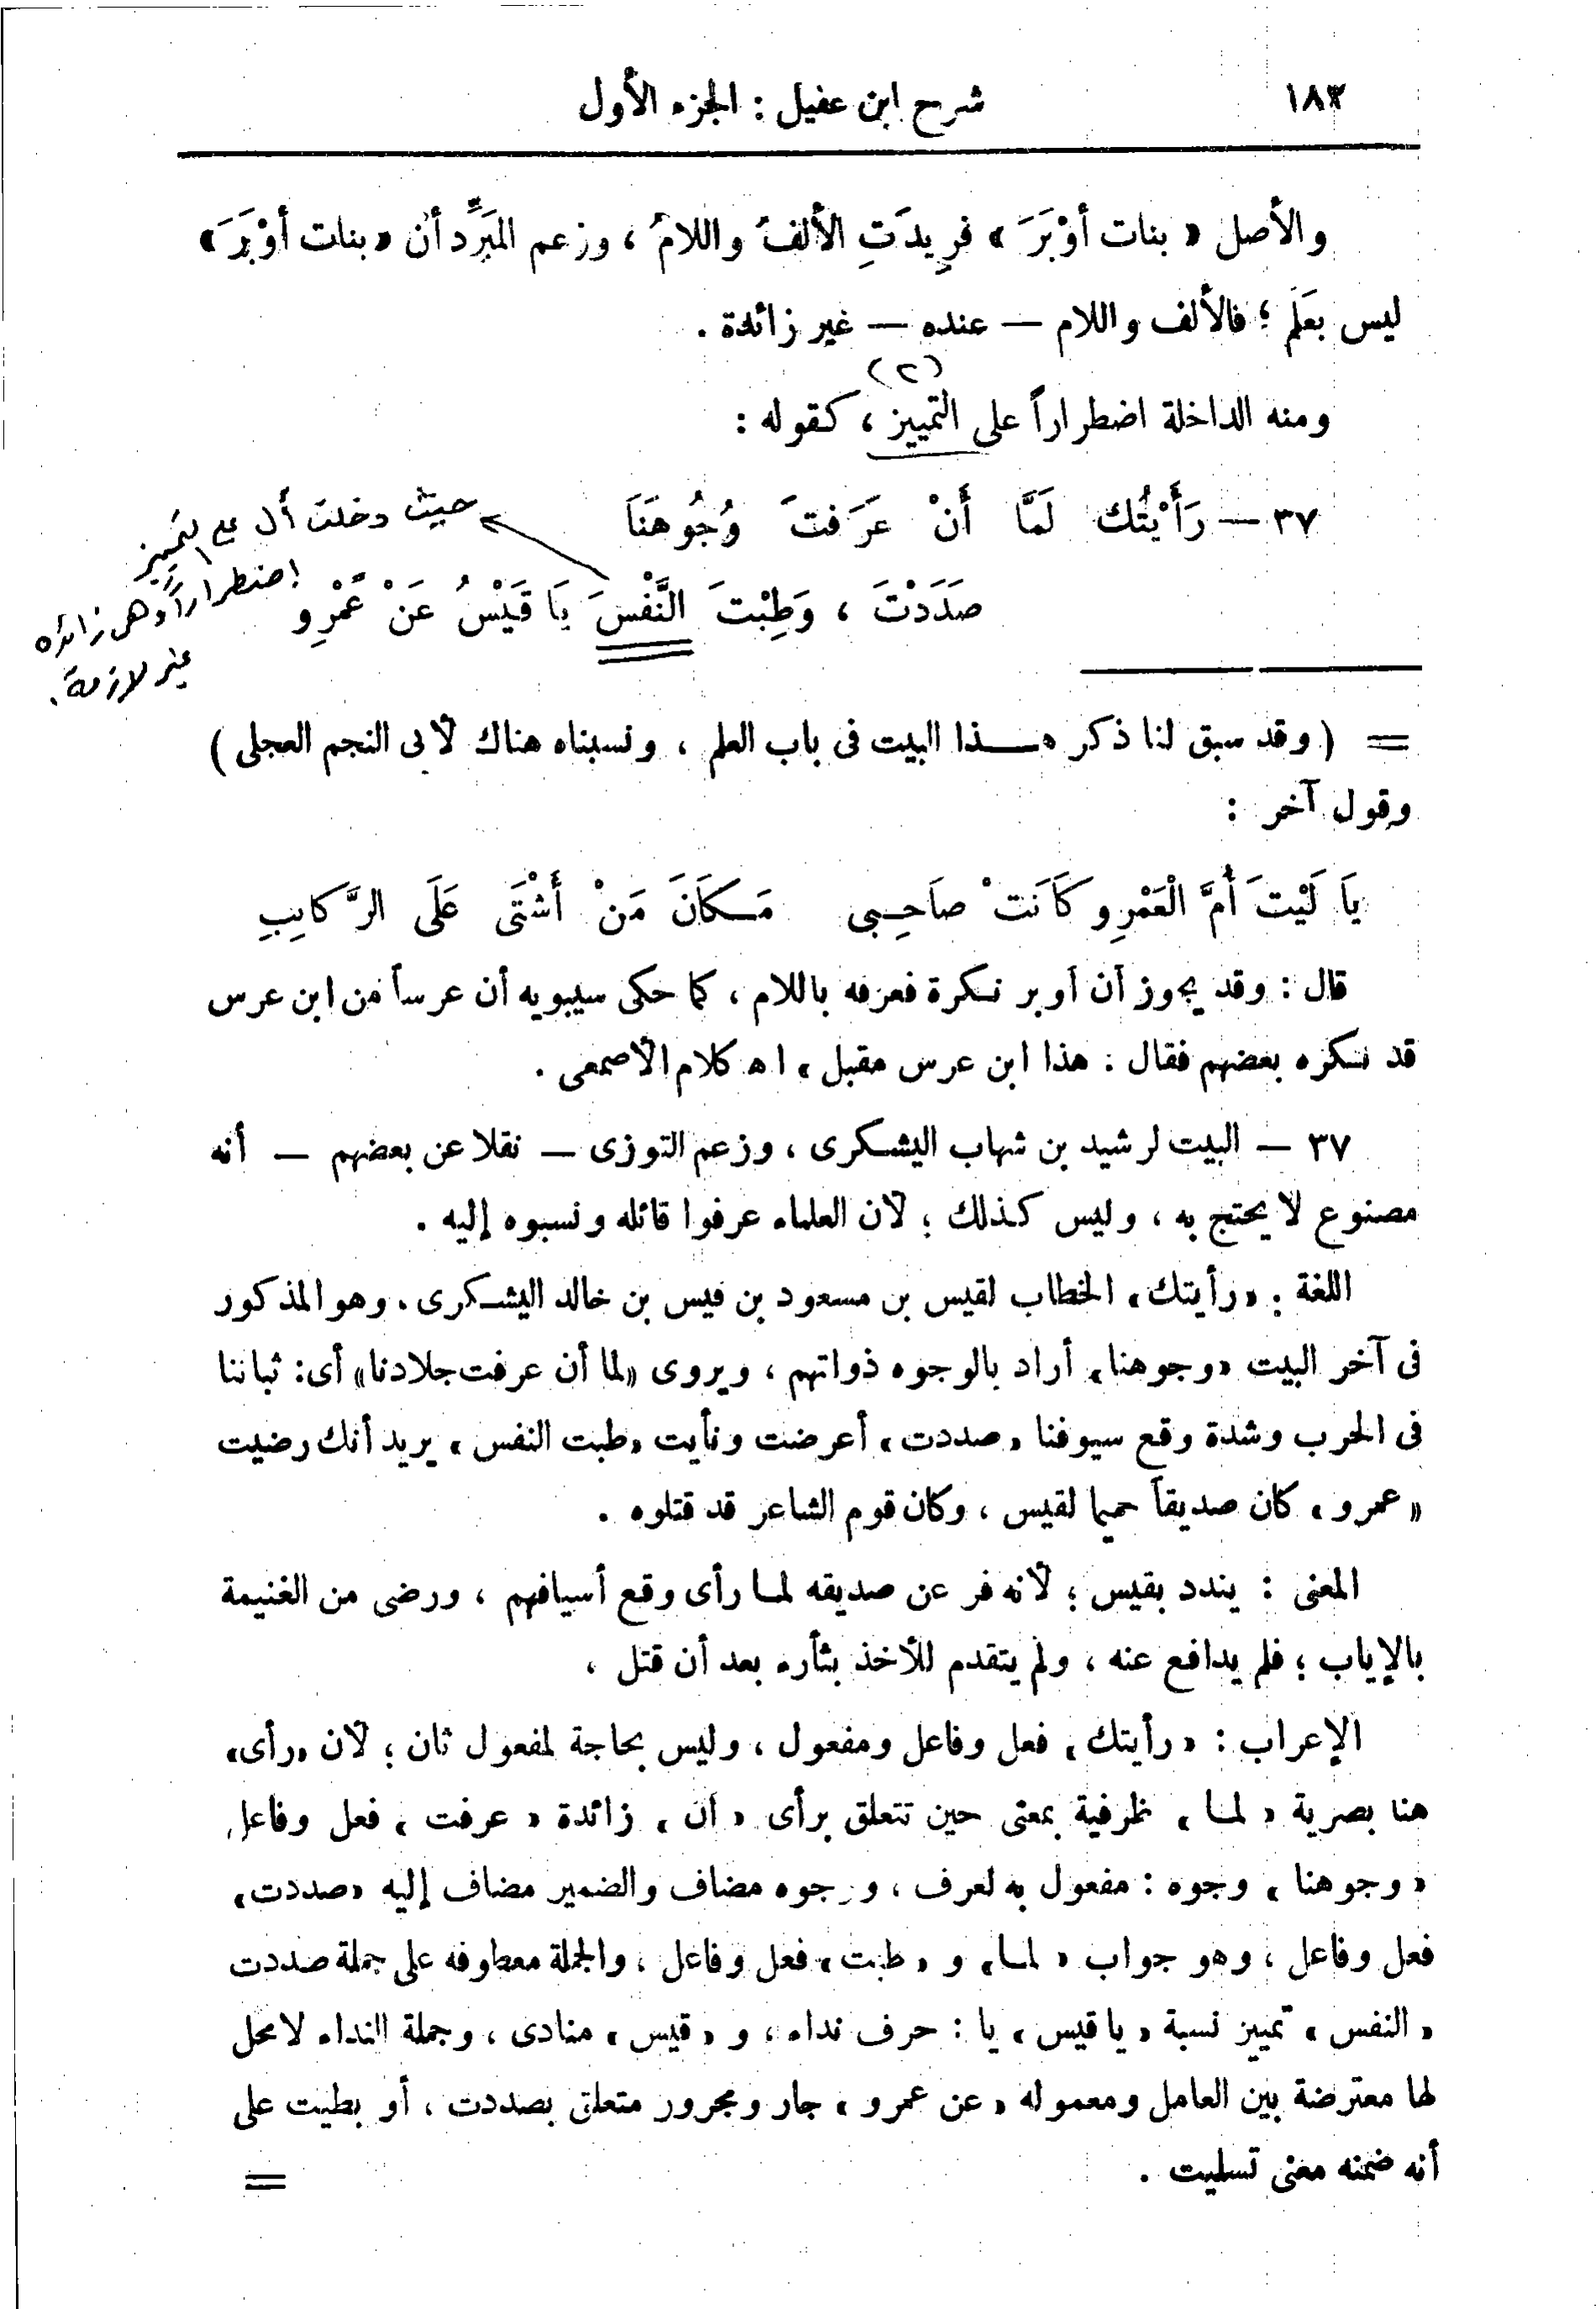 ١٨٢ شرح ابن عقيل : الجزء الأول
والأصل « بنات أوْبَرَ » فزيدَتِ الألفُ واللامُ ، وزعم المبَرِّد أن « بنات أوْبَرَ »
ليس بعَلَم ؛ فالألف واللام — عنده — غير زائدة .
(٢)
ومنه الداخلة اضطراراً على التمييز ، كقوله :
٣٧ — رَأَيْتُك لَمَّا أَنْ عَرَفتَ وُجُوهَنَا
صَدَدْتَ ، وَطِبْتَ النَّفْسَ يَا قَيْسُ عَنْ عَمْرِو
حيث دخلت أل على التمييز
اضطراراً وهى زائده
غير لازمة .
= ( وقد سبق لنا ذكر هــذا البيت فى باب العلم ، ونسبناه هناك لأبى النجم العجلى )
وقول آخر :
يَا لَيْتَ أُمَّ الْعَمْرِو كَانَتْ صَاحِبِى مَكَانَ مَنْ أَشْتَى عَلَى الرَّكايِبِ
قال : وقد يجوز أن أوبر نكرة فعرفه باللام ، كما حكى سيبويه أن عرساً من ابن عرس
قد نكره بعضهم فقال : هذا ابن عرس مقبل » اه كلام الأصمعى .
٣٧ — البيت لرشيد بن شهاب اليشكرى ، وزعم التوزى — نقلا عن بعضهم — أنه
مصنوع لا يحتج به ، وليس كذلك ؛ لأن العلماء عرفوا قائله ونسبوه إليه .
اللغة : « رأيتك » الخطاب لقيس بن مسعود بن قيس بن خالد اليشكرى ، وهو المذكور
فى آخر البيت « وجوهنا » أراد بالوجوه ذواتهم ، ويروى « لما أن عرفت جلادنا » أى : ثباتنا
فى الحرب وشدة وقع سيوفنا « صددت » أعرضت ونأيت « طبت النفس » يريد أنك رضيت
« عمرو » كان صديقاً حميما لقيس ، وكان قوم الشاعر قد قتلوه .
المعنى : يندد بقيس ؛ لأنه فر عن صديقه لمـا رأى وقع أسيافهم ، ورضى من الغنيمة
بالإياب ؛ فلم يدافع عنه ، ولم يتقدم للأخذ بثأره بعد أن قتل ،
الإعراب : « رأيتك » فعل وفاعل ومفعول ، وليس بحاجة لمفعول ثان ؛ لأن « رأى »
هنا بصرية « لمـا » ظرفية بمعنى حين تتعلق برأى « أن » زائدة « عرفت » فعل وفاعل
« وجوهنا » وجوه : مفعول به لعرف ، ووجوه مضاف والضمير مضاف إليه « صددت »
فعل وفاعل ، وهو جواب « لمـا » و « طبت » فعل وفاعل ، والجملة معطوفه على جملة صددت
« النفس » تمييز نسبة « يا قيس » يا : حرف نداء ، و « قيس » منادى ، وجملة النداء لا محل
لها معترضة بين العامل ومعموله « عن عمرو » جار ومجرور متعلق بصددت ، أو بطبت على
أنه ضمنه معنى تسليت .
=